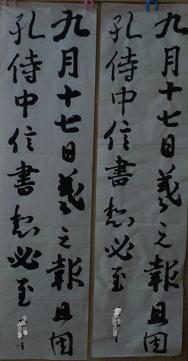 九月十七日羲之報且因
孔侍中信書想必至
九月十七日羲之報且因
孔侍中信書想必至